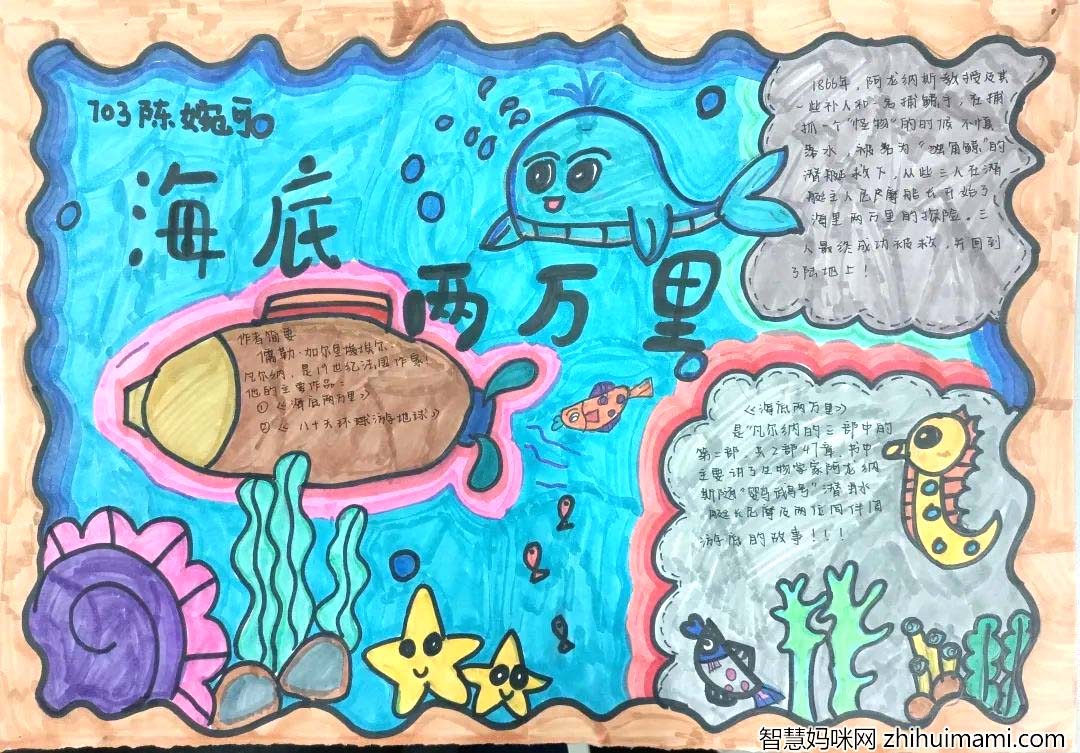 703陈婉可
海底
两万里
1866年，阿龙纳斯教授及其
一些仆人和一名捕鲸手，在捕
抓一个“怪物”的时候不慎
落水，被名为“独角鲸”的
潜艇救下，从些三人在潜
艇主人尼摩船长开始了
海里两万里的探险。三
人最终成功被救，并回到
了陆地上！
作者简要
儒勒·加尔里埃
凡尔纳，是19世纪法国作家！
他的主要作品：
①《海底两万里》
②《八十天环球游地球》
《海底两万里》
是“凡尔纳的三部中的
第二部，共2部47章，书中
主要讲了生物学家阿龙纳
斯随“鹦鹉号”潜水
艇长尼摩及两位同伴周
游海底的故事！！！
智慧妈咪网 zhihuimami.com